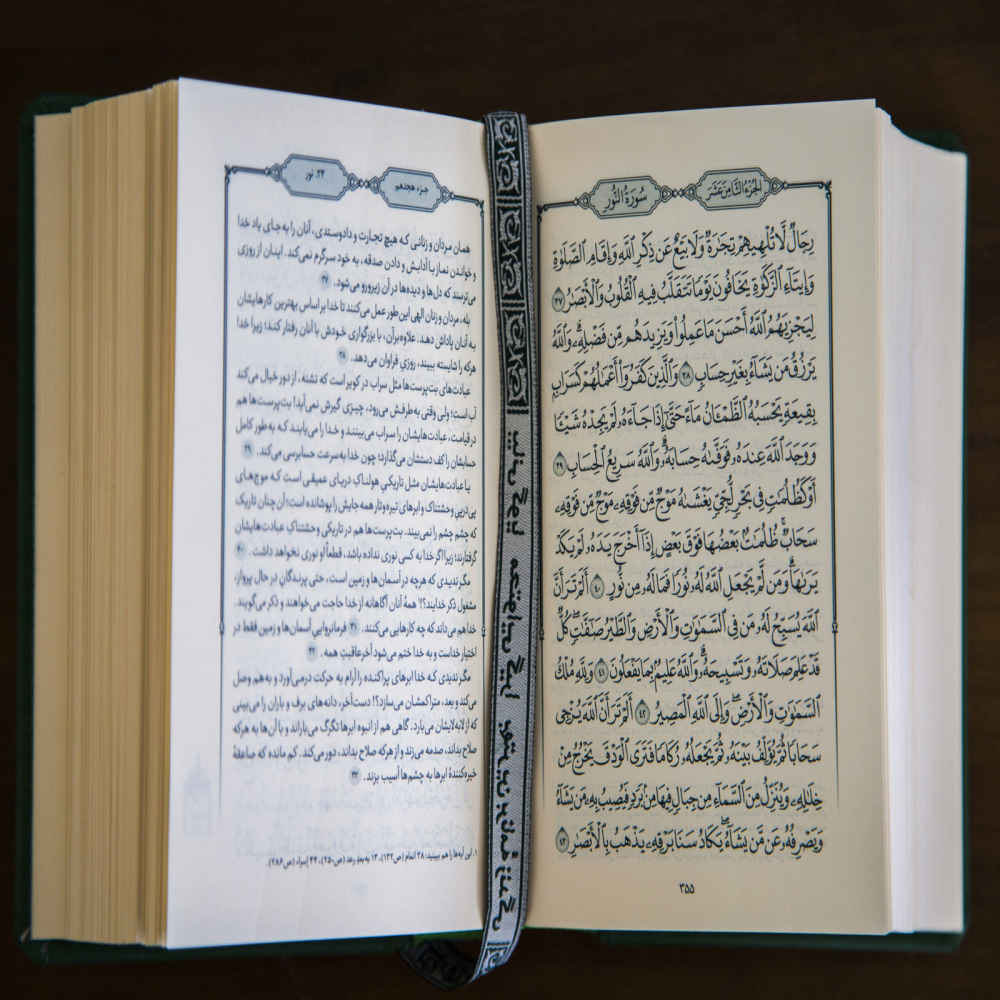 الجُزءُ الثَّامِنَ عَشَرَ
سُورَةُ النُّورِ
رِجَالٌ لَّا تُلْهِيهِمْ تِجَٰرَةٌ وَلَا بَيْعٌ عَن ذِكْرِ ٱللَّهِ وَإِقَامِ ٱلصَّلَوٰةِ
وَإِيتَآءِ ٱلزَّكَوٰةِ يَخَافُونَ يَوْمًا تَتَقَلَّبُ فِيهِ ٱلْقُلُوبُ وَٱلْأَبْصَٰرُ ٣٧
لِيَجْزِيَهُمُ ٱللَّهُ أَحْسَنَ مَا عَمِلُوا۟ وَيَزِيدَهُم مِّن فَضْلِهِۦ وَٱللَّهُ
يَرْزُقُ مَن يَشَآءُ بِغَيْرِ حِسَابٍ ٣٨ وَٱلَّذِينَ كَفَرُوٓا۟ أَعْمَٰلُهُمْ كَسَرَابٍ
بِقِيعَةٍ يَحْسَبُهُ ٱلظَّمْـَٔانُ مَآءً حَتَّىٰٓ إِذَا جَآءَهُۥ لَمْ يَجِدْهُ شَيْـًٔا
وَوَجَدَ ٱللَّهَ عِندَهُۥ فَوَفَّىٰهُ حِسَابَهُۥ وَٱللَّهُ سَرِيعُ ٱلْحِسَابِ ٣٩
أَوْ كَظُلُمَٰتٍ فِى بَحْرٍ لُّجِّىٍّ يَغْشَىٰهُ مَوْجٌ مِّن فَوْقِهِۦ مَوْجٌ مِّن فَوْقِهِۦ
سَحَابٌ ظُلُمَٰتٌۢ بَعْضُهَا فَوْقَ بَعْضٍ إِذَآ أَخْرَجَ يَدَهُۥ لَمْ يَكَدْ
يَرَىٰهَا وَمَن لَّمْ يَجْعَلِ ٱللَّهُ لَهُۥ نُورًا فَمَا لَهُۥ مِن نُّورٍ ٤٠ أَلَمْ تَرَ أَنَّ
ٱللَّهَ يُسَبِّحُ لَهُۥ مَن فِى ٱلسَّمَٰوَٰتِ وَٱلْأَرْضِ وَٱلطَّيْرُ صَٰٓفَّٰتٍ كُلٌّ
قَدْ عَلِمَ صَلَاتَهُۥ وَتَسْبِيحَهُۥ وَٱللَّهُ عَلِيمٌۢ بِمَا يَفْعَلُونَ ٤١ وَلِلَّهِ مُلْكُ
ٱلسَّمَٰوَٰتِ وَٱلْأَرْضِ وَإِلَى ٱللَّهِ ٱلْمَصِيرُ ٤٢ أَلَمْ تَرَ أَنَّ ٱللَّهَ يُزْجِى
سَحَابًا ثُمَّ يُؤَلِّفُ بَيْنَهُۥ ثُمَّ يَجْعَلُهُۥ رُكَامًا فَتَرَى ٱلْوَدْقَ يَخْرُجُ مِنْ
خِلَٰلِهِۦ وَيُنَزِّلُ مِنَ ٱلسَّمَآءِ مِن جِبَالٍ فِيهَا مِنۢ بَرَدٍ فَيُصِيبُ بِهِۦ مَن يَشَآءُ
وَيَصْرِفُهُۥ عَن مَّن يَشَآءُ يَكَادُ سَنَا بَرْقِهِۦ يَذْهَبُ بِٱلْأَبْصَٰرِ ٤٣
۳۵۵
جزء هجدهم
۲۴. نور
همان مردان و زنانی که هیچ تجارت و دادوستدی، آنان را به جای یاد خدا
و خواندن نماز با آدابش و دادن صدقه، به خود سرگرم نمی‌کند. اینان از روزی
می‌ترسند که دل‌ها و دیده‌ها در آن زیرورو می‌شود. ۳۷
بله، مردان و زنان الهی این طور عمل می‌کنند تا خدا بر اساس بهترین کارهایشان
به آنان پاداش دهد. علاوه‌برآن، با بزرگواری خودش با آنان رفتار کند؛ زیرا خدا
هرکه را شایسته ببیند، روزیِ فراوان می‌دهد. ۳۸
عبادت‌های بت‌پرست‌ها مثل سراب در کویر است که تشنه، از دور خیال می‌کند
آب است؛ ولی وقتی به‌طرفش می‌رود، چیزی گیرش نمی‌آید! بت‌پرست‌ها هم
در قیامت، عبادت‌هایشان را سراب می‌بینند و خدا را می‌یابند که به‌طور کامل
حسابشان را کف دستشان می‌گذارد؛ چون خدا به‌سرعت حسابرسی می‌کند. ۳۹
یا عبادت‌هایشان مثل تاریکیِ هولناک دریای عمیقی است که موج‌های
پی‌درپی وحشتناک و ابرهای تیره‌وتار همه جایش را پوشانده است؛ آن چنان تاریک
که چشم چشم را نمی‌بیند. بت‌پرست‌ها هم در تاریکی وحشتناکِ عبادت‌هایشان
گرفتارند؛ زیرا اگر خدا به کسی نوری نداده باشد، قطعاً او نوری نخواهد داشت. ۴۰
مگر ندیدی که هرچه در آسمان‌ها و زمین است، حتی پرندگانِ در حال پرواز،
مشغول ذکر خدایند؟! همهٔ آنان آگاهانه از خدا حاجت می‌خواهند و ذکر می‌گویند.
خدا هم می‌داند که چه کارهایی می‌کنند. ۴۱ فرمانروایی آسمان‌ها و زمین فقط در
اختیار خداست و به خدا ختم می‌شود آخرعاقبتِ همه. ۴۲
مگر ندیدی که خدا ابرهای پراکنده را آرام به حرکت درمی‌آورد و به‌هم وصل
می‌کند و بعد، متراکمشان می‌سازد؟! دست‌آخر، دانه‌های برف و باران را می‌بینی
که از لابه‌لایشان می‌بارد. گاهی هم از انبوه ابرها تگرگ می‌باراند و با آن‌ها به هرکه
صلاح بداند، صدمه می‌زند و از هرکه صلاح بداند، دور می‌کند. کم مانده که صاعقهٔ
خیره‌کنندهٔ ابرها به چشم‌ها آسیب بزند. ۴۳